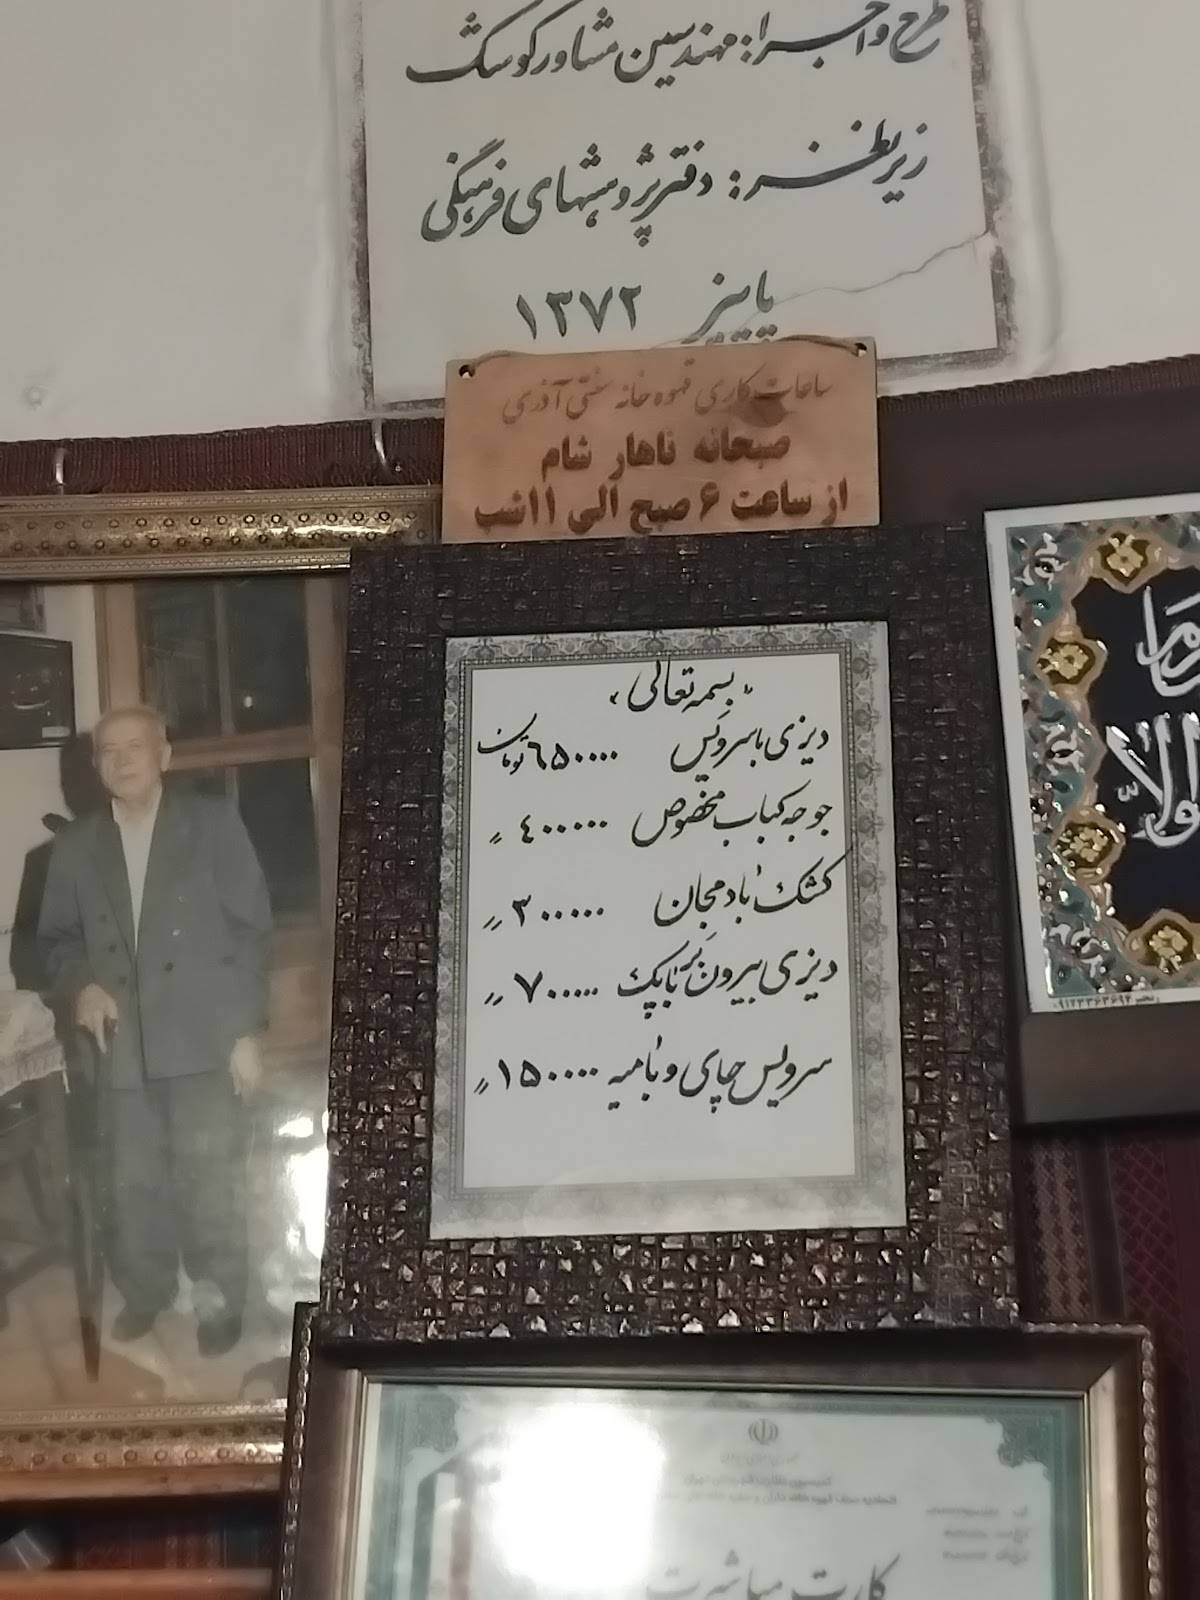 طرح و اجرا: مهندسین مشاور کوشک
زیر نظر: دفتر پژوهشهای فرهنگی
پاییز ۱۳۷۲
ساعات کاری قهوه خانه سنتی آذری
صبحانه ناهار شام
از ساعت ۶ صبح الی ۱۱ شب
«بسمه تعالی»
دیزی با سرویس ۶۵۰۰۰۰ تومان
جوجه کباب مخصوص ۴۰۰۰۰۰ 〃
کشک بادمجان ۳۰۰۰۰۰ 〃
دیزی بیرون بَر باپک ۷۰۰۰۰۰ 〃
سرویس چای و بامیه ۱۵۰۰۰۰ 〃
کارت مباشرت